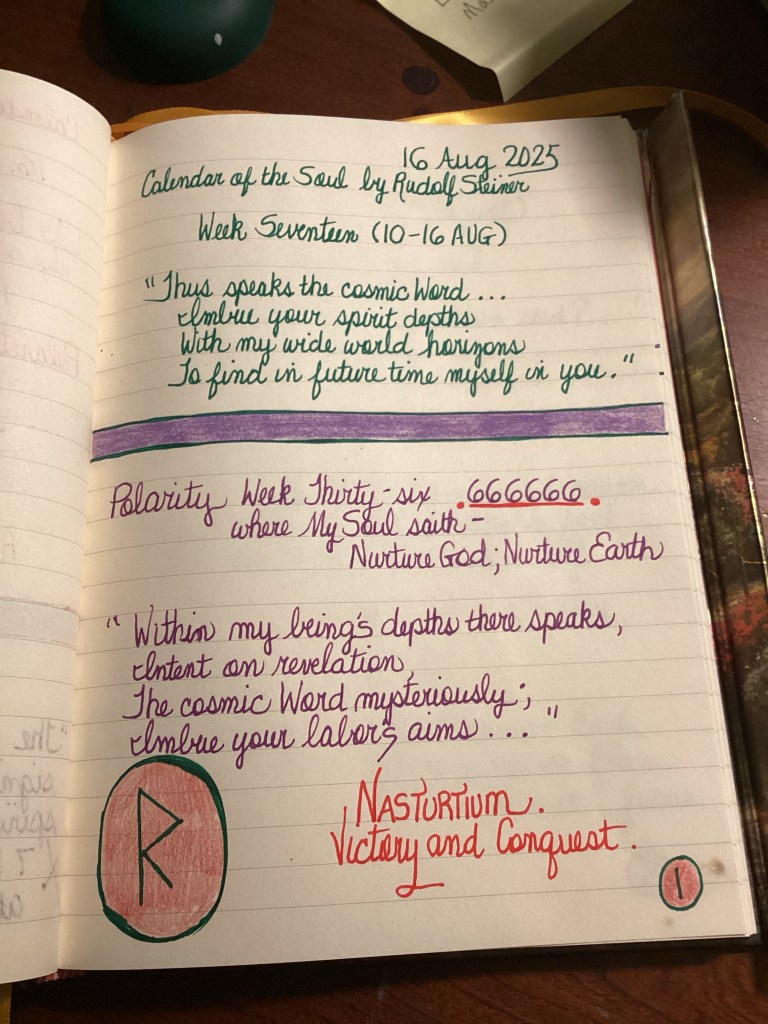 16 Aug 2025
Calendar of the Soul by Rudolf Steiner
Week Seventeen (10-16 AUG)
"Thus speaks the cosmic Word ...
Imbue your spirit depths
With my wide world horizons
To find in future time myself in you."
Polarity Week Thirty-six .666666.
where My Soul saith -
Nurture God; Nurture Earth
"Within my being's depths there speaks,
Intent on revelation,
The cosmic Word mysteriously;
Imbue your labor's aims ... "
NASTURTIUM.
Victory and Conquest.
ᚱ
1